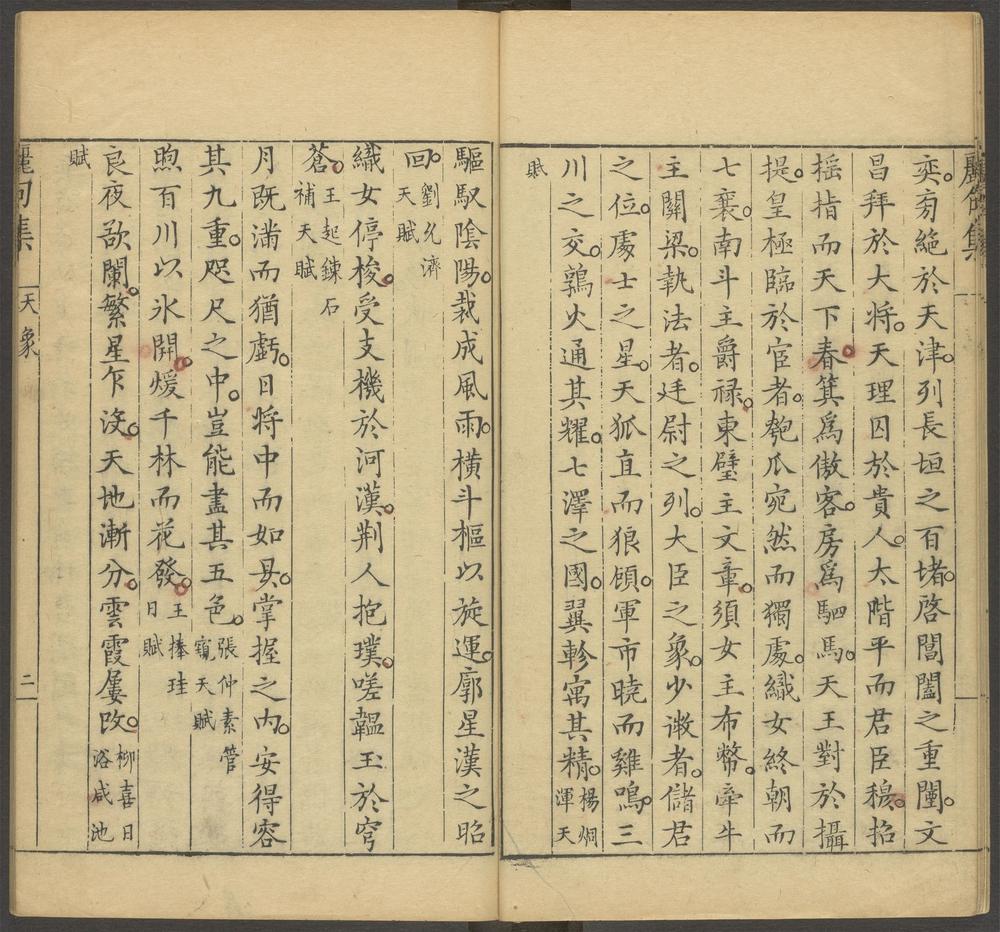 奕奕絶於天津列長垣之百堵啓閶闔之重闉文
昌拜於大將天理囚於貴人太階平而君臣穆招
搖指而天下春箕爲傲客房爲駟馬天王對於攝
提皇極臨於宦者匏瓜宛然而獨處織女終朝而
七襄南斗主爵祿東壁主文章須女主布幣牽牛
主關梁執法者廷尉之列大臣之象少微者儲君
之位處士之星天狐直而狼頎軍市曉而雞鳴三
川之交鶉火通其耀七澤之國翼軫寓其精楊烱渾天
賦
驅馭陰陽裁成風雨橫斗樞以旋運廓星漢之昭
回劉允濟天賦
織女停梭受支機於河漢荆人抱璞嗟韞玉於穹
蒼王起鍊石補天賦
月既滿而猶虧日將中而如昃掌握之内安得容
其九重咫尺之中豈能盡其五色張仲素管窺天賦
煦百川以氷開煖千林而花發王捧珪日賦
良夜欲闌繁星乍沒天地漸分雲霞屢改柳喜日浴咸池
賦
麗句集
天象
二